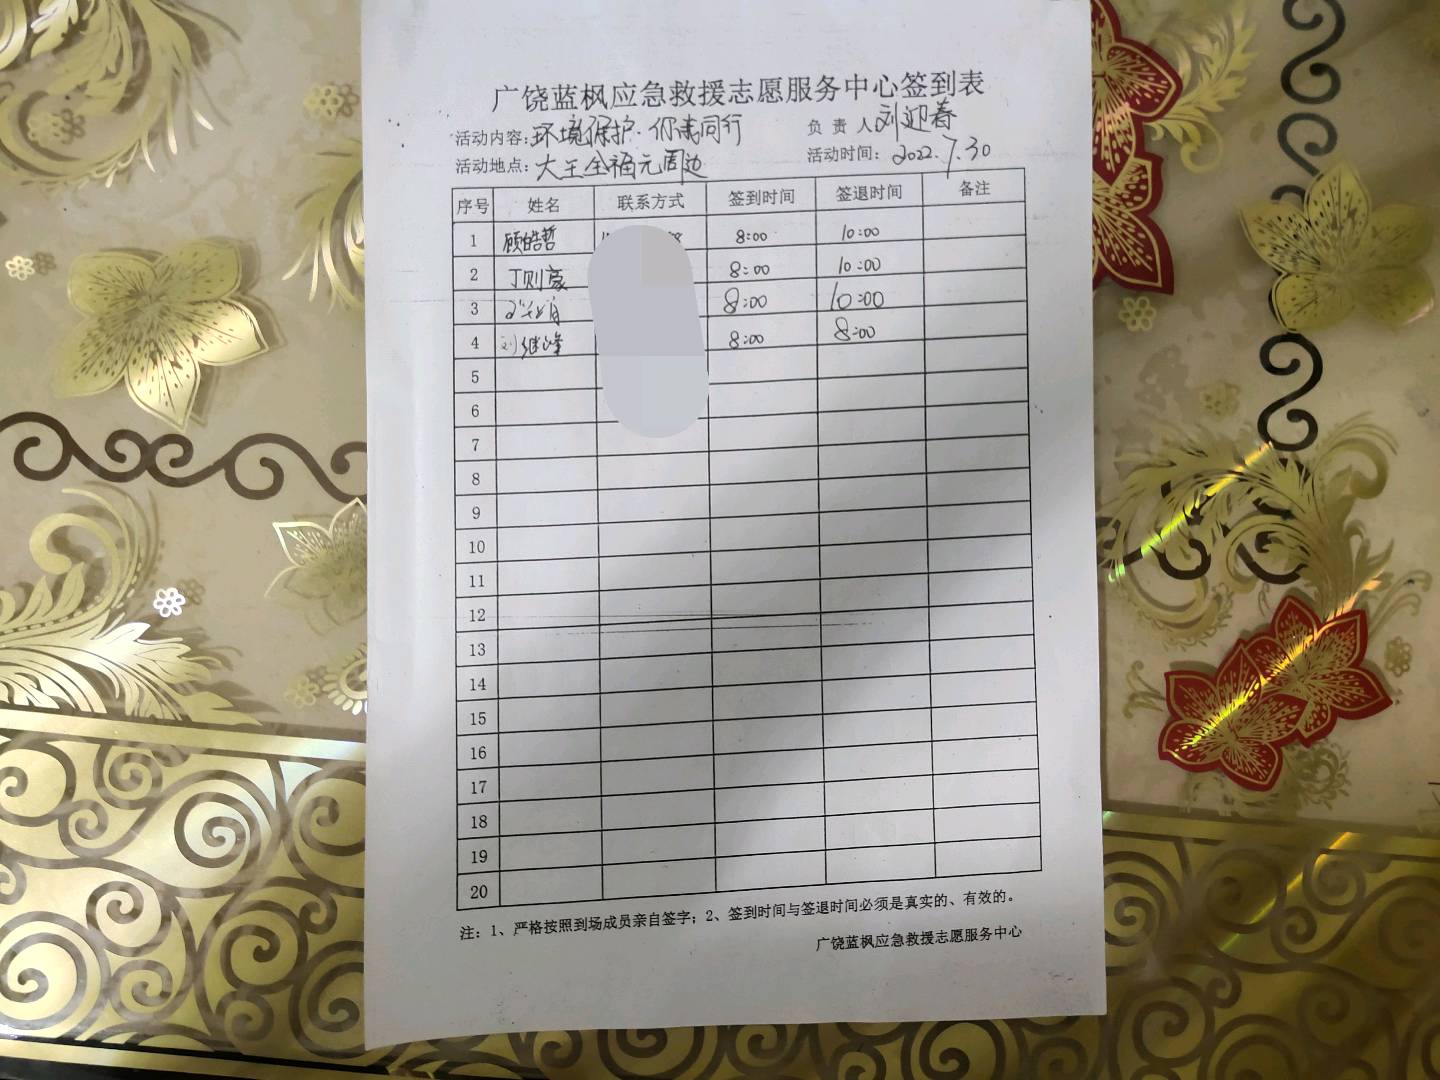 广饶蓝枫应急救援志愿服务中心签到表
活动内容:环境保护·你我同行 负责人刘迎春
活动地点:大王全福元周边 活动时间:2022.7.30
序号 姓名 联系方式 签到时间 签退时间 备注
1 顾皓哲 8:00 10:00
2 丁则豪 8:00 10:00
3 8:00 10:00
4 刘继峰 8:00 8:00
5
6
7
8
9
10
11
12
13
14
15
16
17
18
19
20
注:1、严格按照到场成员亲自签字;2、签到时间与签退时间必须是真实的、有效的。
广饶蓝枫应急救援志愿服务中心